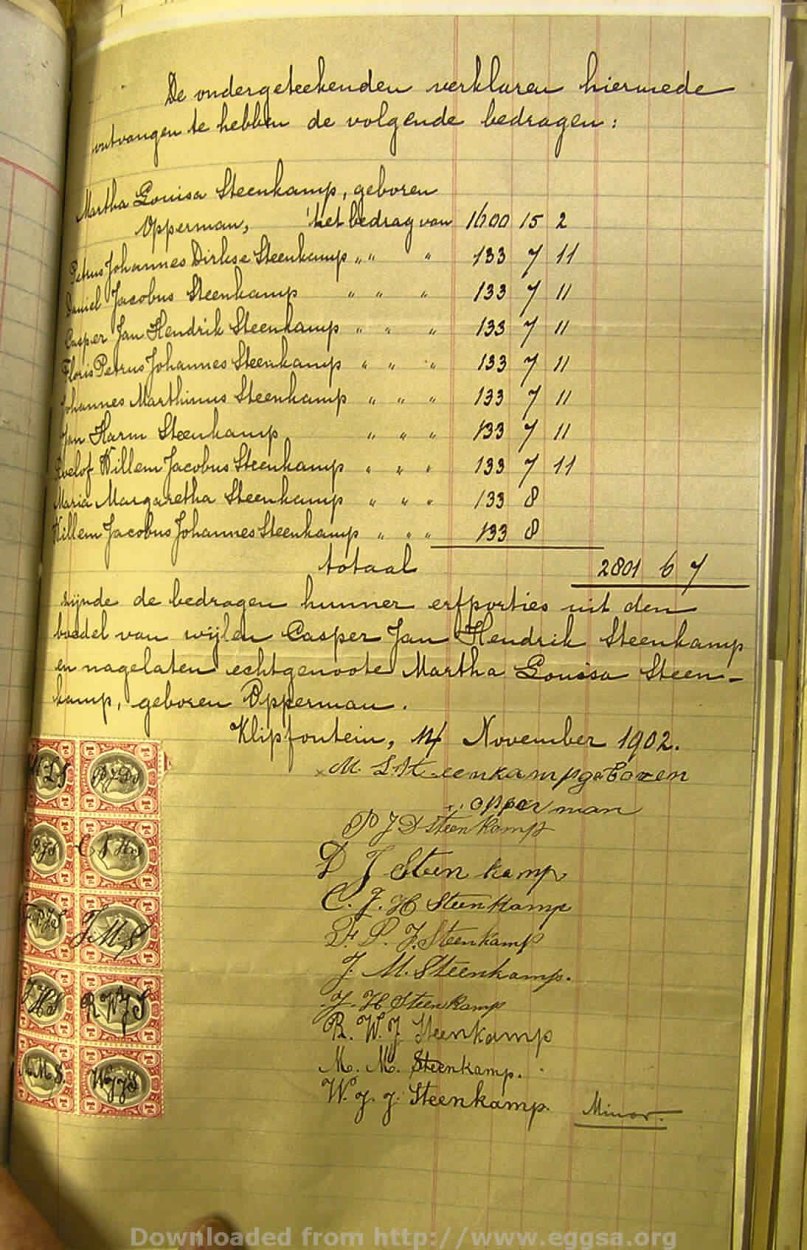 De ondergeteekenden verklaren hiermede
ontvangen te hebben de volgende bedragen:
Martha Louisa Steenkamp, geboren
Opperman, het bedrag van 1600 15 2
Petrus Johannes Dirkse Steenkamp " " " 133 7 11
Daniel Jacobus Steenkamp " " " 133 7 11
Casper Jan Hendrik Steenkamp " " " 133 7 11
Floris Petrus Johannes Steenkamp " " " 133 7 11
Johannes Marthinus Steenkamp " " " 133 7 11
Jan Harm Steenkamp " " " 133 7 11
Roelof Willem Jacobus Steenkamp " " " 133 7 11
Maria Margaretha Steenkamp " " " 133 8
Willem Jacobus Johannes Steenkamp " " " 133 8
totaal 2801 6 7
zijnde de bedragen hunner erfporties uit den
boedel van wijlen Casper Jan Hendrik Steenkamp
en nagelaten echtgenoote Martha Louisa Steen-
kamp, geboren Opperman.
Klipfontein, 14 November 1902.
x M. L. Steenkamp geboren
opperman
P J D Steenkamp
D J Steenkamp
C. J. H Steenkamp
F. P. J. Steenkamp
J. M. Steenkamp.
J. H Steenkamp
R. W. J Steenkamp
M. M. Steenkamp.
W. J. J. Steenkamp. Minor.
M L S P J D S
D J S C J H S
F P J S J. M. S
J H S R W J S
M. M. S. W J J S
Downloaded from http://www.eggsa.org